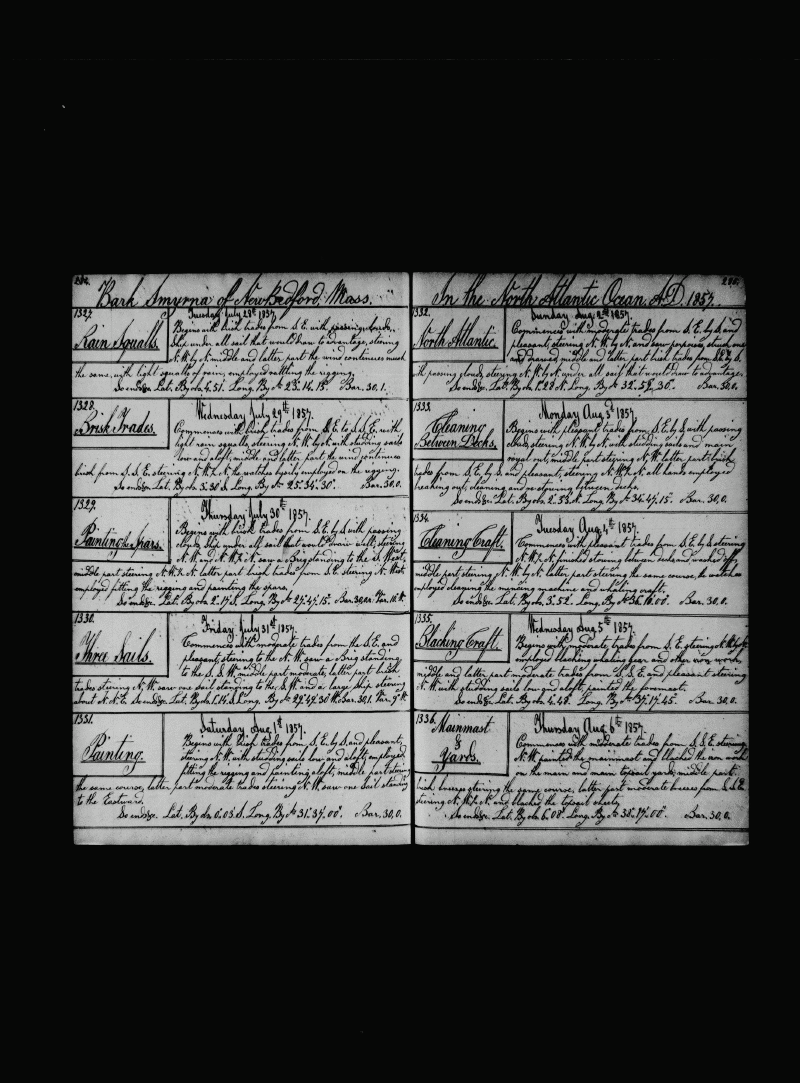 Bark Smyrna of New Bedford, Mass.
1327.
Tuesday July 28th 1857.
Rain Squalls.
Begins with brisk trades from S. E. with passing clouds,
Ship under all sail that would draw to advantage, steering
N. W. by N. middle and latter part the wind continues much
the same, with light squalls of rain, employed rattling the rigging.
So ends. Lat. By obs. 4.51. Long. By Ac 23.14.15. Bar. 30,1.
1328.
Wednesday July 29th 1857.
Brisk Trades.
Commences with brisk trades from S. E. to S. S. E. with
light rain squalls, steering N. W. by N. with studding sails
low and aloft, middle and latter part the wind continues
brisk from S. S. E. steering N. W. 1/2 N. the watches busily employed on the rigging.
So ends. Lat. By obs. 3.30 S. Long. By Ac 25.34.30. Bar. 30,0.
1329.
Thursday July 30th 1857.
Painting the Spars.
Begins with brisk trades from S. E. by S. with passing
clouds, Ship under all sail that would draw aloft, steering
N. W. and N. W. 1/2 N. saw a Brig standing to the S. West,
middle part steering N. W. 1/2 N. latter part brisk trades from S. E. steering N. West
employed fitting the rigging and painting the spars.
So ends. Lat. By obs. 2.17 S. Long. By Ac 27.47.15. Bar. 30,0. Var. 10 W
1330.
Friday July 31st 1857.
Three Sails.
Commences with moderate trades from the S. E. and
pleasant, steering to the N. W. saw a Brig standing
to the S. S. W. middle part moderate, latter part brisk
trades steering N. W. saw one sail standing to the S. W. and a large ship steering
about N. N. E. So ends. Lat. By obs. 1.14 S. Long. By Ac 29.49.30 W. Bar. 30,1. Var. 9 W
1331.
Saturday Aug. 1st 1857.
Painting.
Begins with brisk trades from S. E. by S. and pleasant,
steering N. W. with studding sails low and aloft, employed
fitting the rigging and painting aloft, middle part steering
the same course, latter part moderate trades steering N. W. saw one Sail standing
to the Eastward.
So ends. Lat. By obs. 0.03 S. Long. By Ac 31.37.00. Bar. 30,0.
In the North Atlantic Ocean. A.D. 1857.
1332.
Sunday Aug. 2nd 1857.
North Atlantic.
Commences with moderate trades from S. E. by S. and
pleasant, steering N. W. by N. and saw porpoises, struck one
and saved, middle and latter part brisk trades from
with passing clouds, steering N. W. by N. under all sail that would draw to advantage.
So ends. Lat. By obs. 1.28 N. Long. By 32.52.30. Bar. 30,0.
1333.
Monday Aug. 3d 1857.
Cleaning
Between Decks.
Begins with pleasant trades from S. E. by S. with passing
clouds, steering N. W. by N. with studding sails and main
royal out, middle part steering N. W. latter part brisk
trades from S. E. by S. and pleasant, steering N. W. 1/2 N. all hands employed
breaking out, cleaning and re-stowing between decks.
So ends. Lat. By obs. 2.53 N. Long. By Ac 34.47.15. Bar. 30,0.
1334.
Tuesday Aug. 4th 1857.
Cleaning Craft.
Commences with pleasant trades from S. E. by S. steering
N. W. 1/2 N. finished stowing between decks and washed off,
middle part steering N. W. by N. latter part steering the same course, the watches
employed cleaning the mincing machine and whaling craft.
So ends. Lat. By obs. 3.52. Long. By Ac 36.10.00. Bar. 30,0.
1335.
Wednesday Aug. 5th 1857.
Blacking Craft.
Begins with moderate trades from S. E. steering N. W. by N.
employed blacking whaling gear and other iron work,
middle and latter part moderate trades from S. S. E. and pleasant steering
N. W. with studding sails low and aloft, painted the foremast.
So ends. Lat. By obs. 4.48. Long. By Ac 37.17.45. Bar. 30,0.
1336.
Thursday Aug. 6th 1857.
Mainmast
&
Yards.
Commences with moderate trades from S. S. E. steering
N. W. painted the mainmast and blacked the iron work
on the main and main topsail yards, middle part
brisk breezes steering the same course, latter part moderate breezes from S. S. E.
steering N. W. 1/2 N. and blacked the topsail sheets.
So ends. Lat. By obs. 6.08. Long. By Ac 38.17.00. Bar. 30,0.